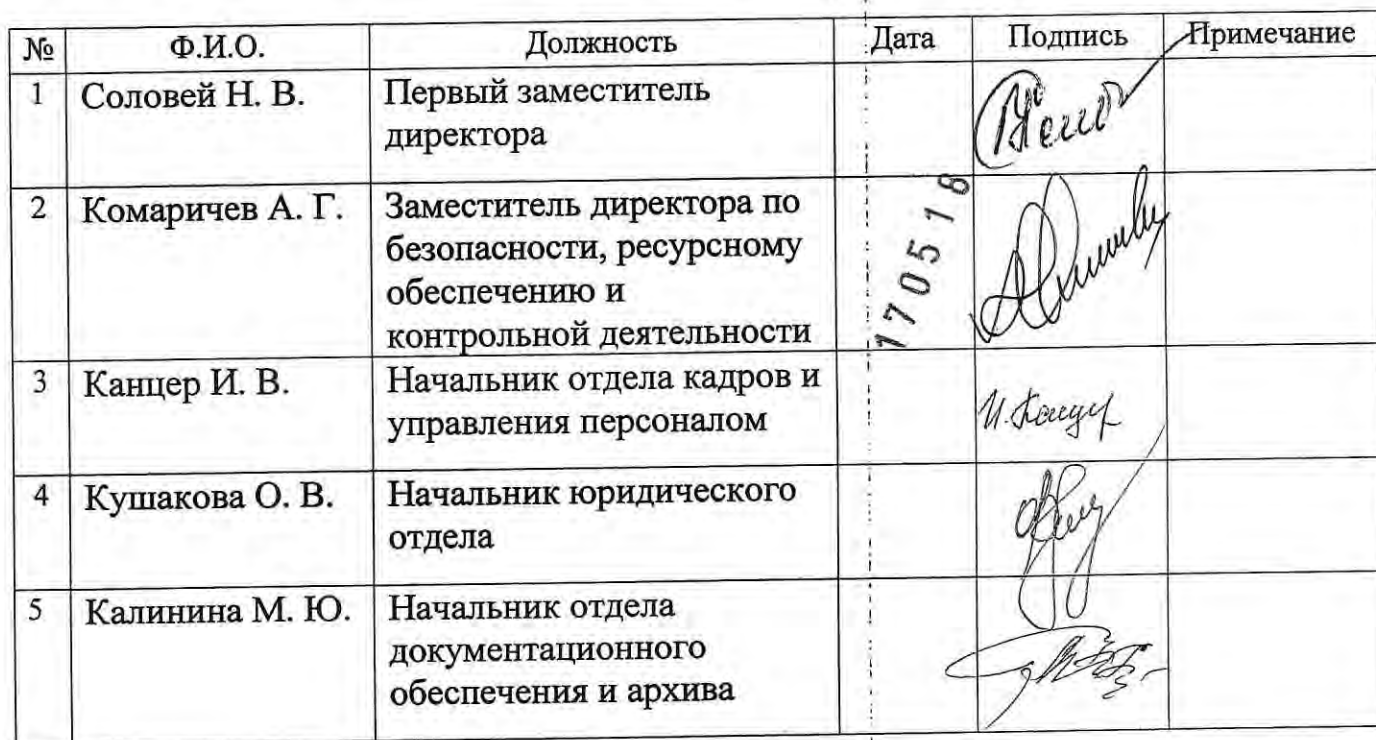 № Ф.И.О. Должность Дата Подпись Примечание
1 Соловей Н. В. Первый заместитель
директора
2 Комаричев А. Г. Заместитель директора по
безопасности, ресурсному
обеспечению и
контрольной деятельности
170518
3 Канцер И. В. Начальник отдела кадров и
управления персоналом
И. Канцер
4 Кушакова О. В. Начальник юридического
отдела
5 Калинина М. Ю. Начальник отдела
документационного
обеспечения и архива